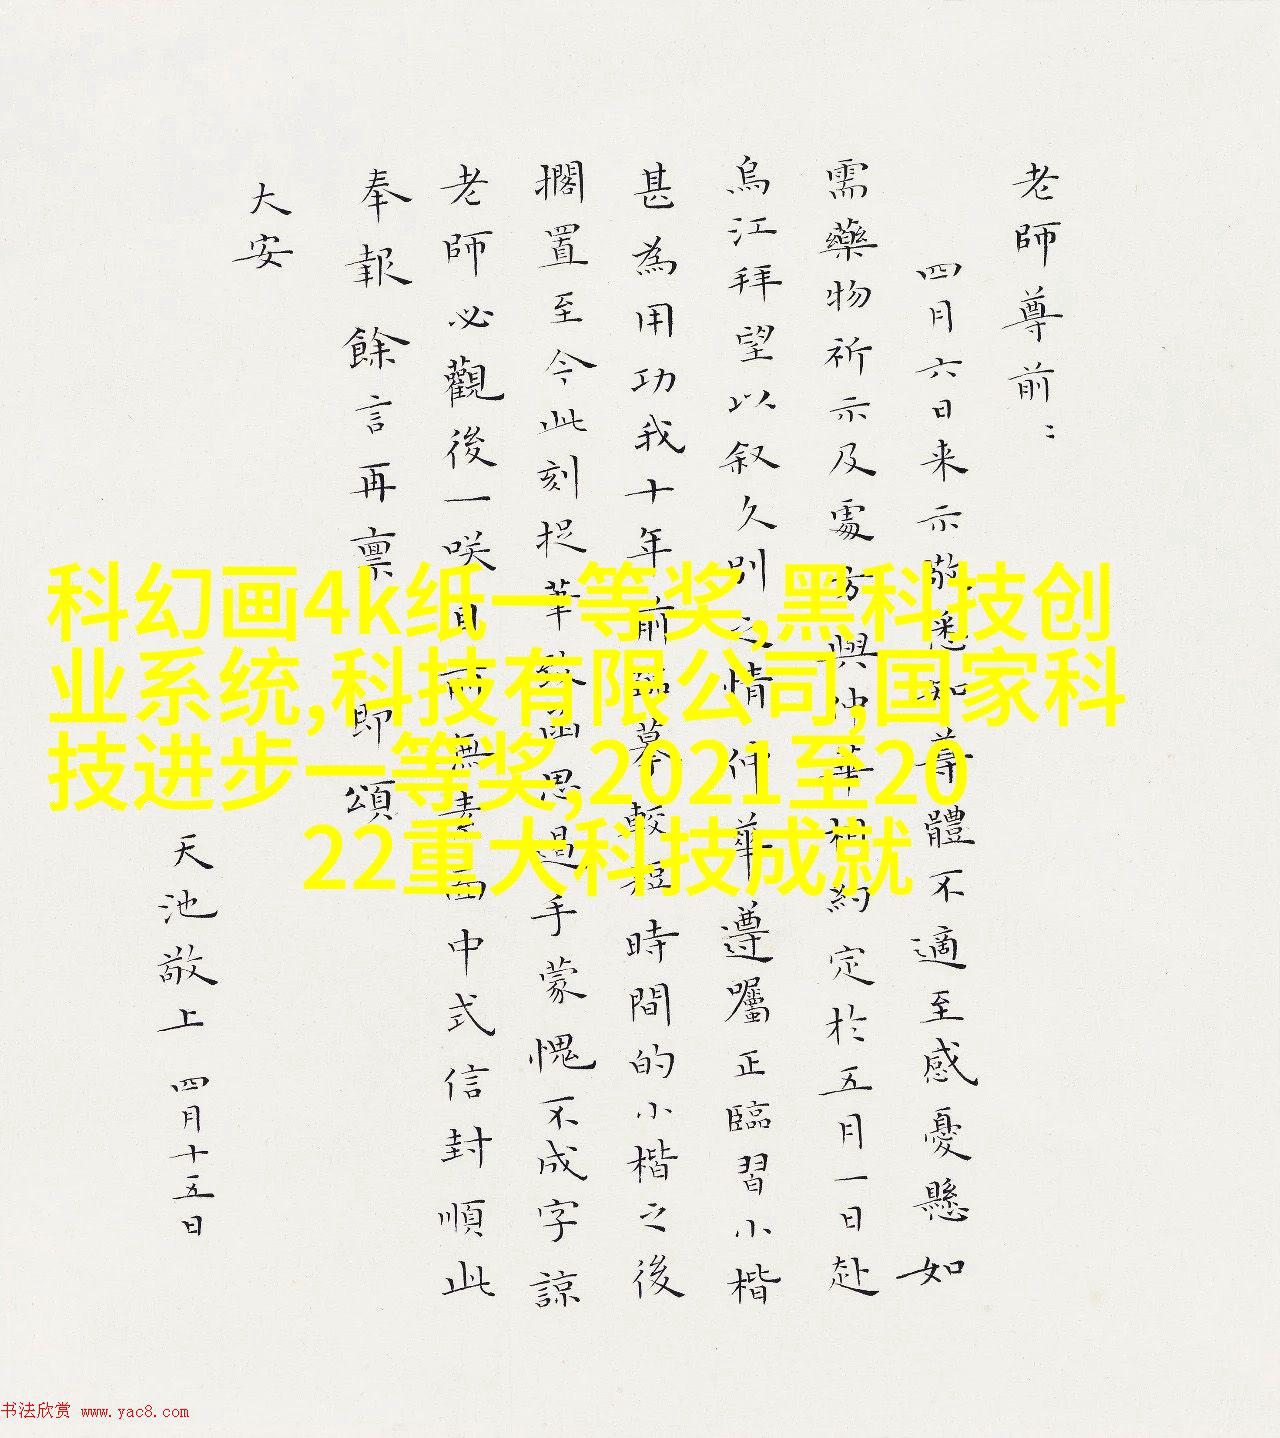 老師尊前：
四月六日来示敬悉知尊體不適至感憂懸如
需藥物祈示及處方與仲華相約定於五月一日赴
烏江拜望以叙久別之情仲華遵囑正臨習小楷
甚為用功我十年前臨摹較短時間的小楷之後
擱置至今此刻捉筆致函思過手蒙愧不成字諒
老師必觀後一咲且而無素白中式信封順此
奉報餘言再禀即頌
大安
天池敬上 四月十五日
科幻画4k纸一等奖,黑科技创
业系统,科技有限公司,国家科
技进步一等奖,2021至20
22重大科技成就
书法欣赏 www.yac8.com